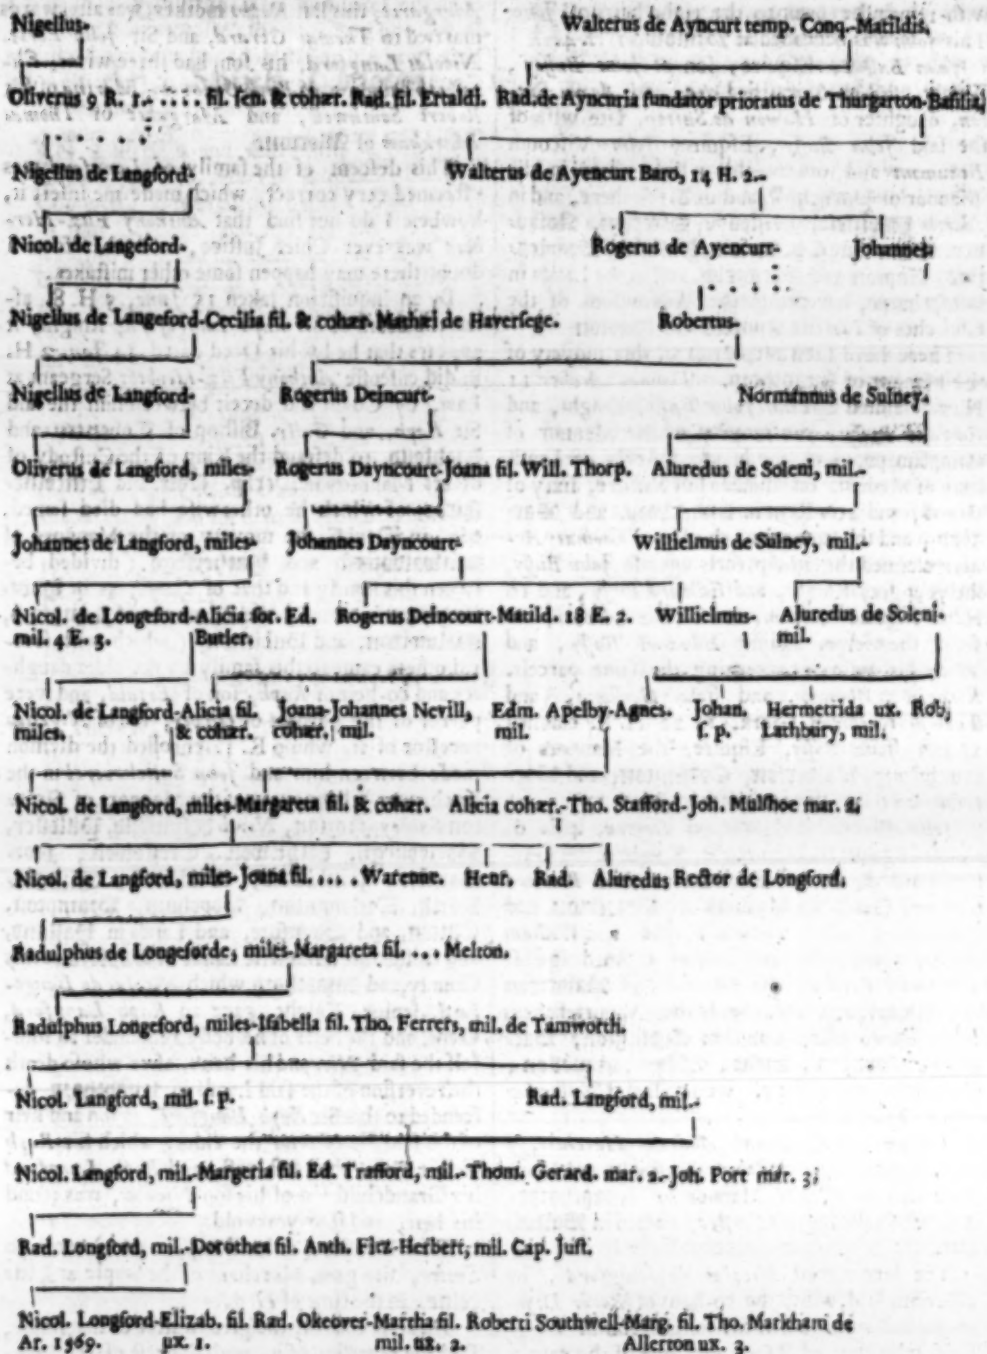 Nigellus- Walterus de Ayncurt temp. Conq.-Matildis.
Oliverus 9 R. 1.- . . . . fil. sen. & cohær. Rad. fil. Ertaldi. Rad. de Ayncuria fundator prioratus de Thurgarton-Basilia,
Nigellus de Langford- Walterus de Ayencurt Baro, 14 H. 2.-
Nicol. de Langeford- Rogerus de Ayencurt- Johannes
Nigellus de Langeford-Cecilia fil. & cohær. Mathæi de Haversege. Robertus-
Nigellus de Langford- Rogerus Deincurt- Normannus de Sulney-
Oliverus de Langford, miles- Rogerus Dayncourt-Joana fil. Will. Thorp. Aluredus de Soleni, mil.-
Johannes de Langford, miles- Johannes Dayncourt- Willielmus de Sulney, mil.-
Nicol. de Longeford-Alicia sor. Ed. Rogerus Deincourt-Matild. 18 E. 2. Willielmus- Aluredus de Soleni-
mil. 4 E. 3. Butler. mil.
Nicol. de Langford-Alicia fil. Joana-Johannes Nevill, Edm. Apelby-Agnes. Johan. Hermetrida ux. Rob.
miles. & cohær. cohær. mil. mil. s. p. Lathbury, mil.
Nicol. de Langford, miles-Margareta fil. & cohær. Alicia cohær.-Tho. Stafford-Joh. Mulshoe mar. 2.
Nicol. de Langford, miles-Joana fil. . . . . Warenne. Henr. Rad. Aluredus Rector de Longford.
Radulphus de Longeforde, miles-Margareta fil. . . . Melton.
Radulphus Longeford, miles-Isabella fil. Tho. Ferrers, mil. de Tamworth.
Nicol. Langford, mil. s. p. Rad. Langford, mil.-
Nicol. Langford, mil.-Margeria fil. Ed. Trafford, mil.-Thom. Gerard. mar. 2.-Joh. Port mar. 3.
Rad. Longford, mil.-Dorothea fil. Anth. Fitz-Herbert, mil. Cap. Just.
Nicol. Longford-Elizab. fil. Rad. Okeover-Martha fil. Roberti Southwell-Marg. fil. Tho. Markham de
Ar. 1569. ux. 1. mil. ux. 2. Allerton ux. 3.